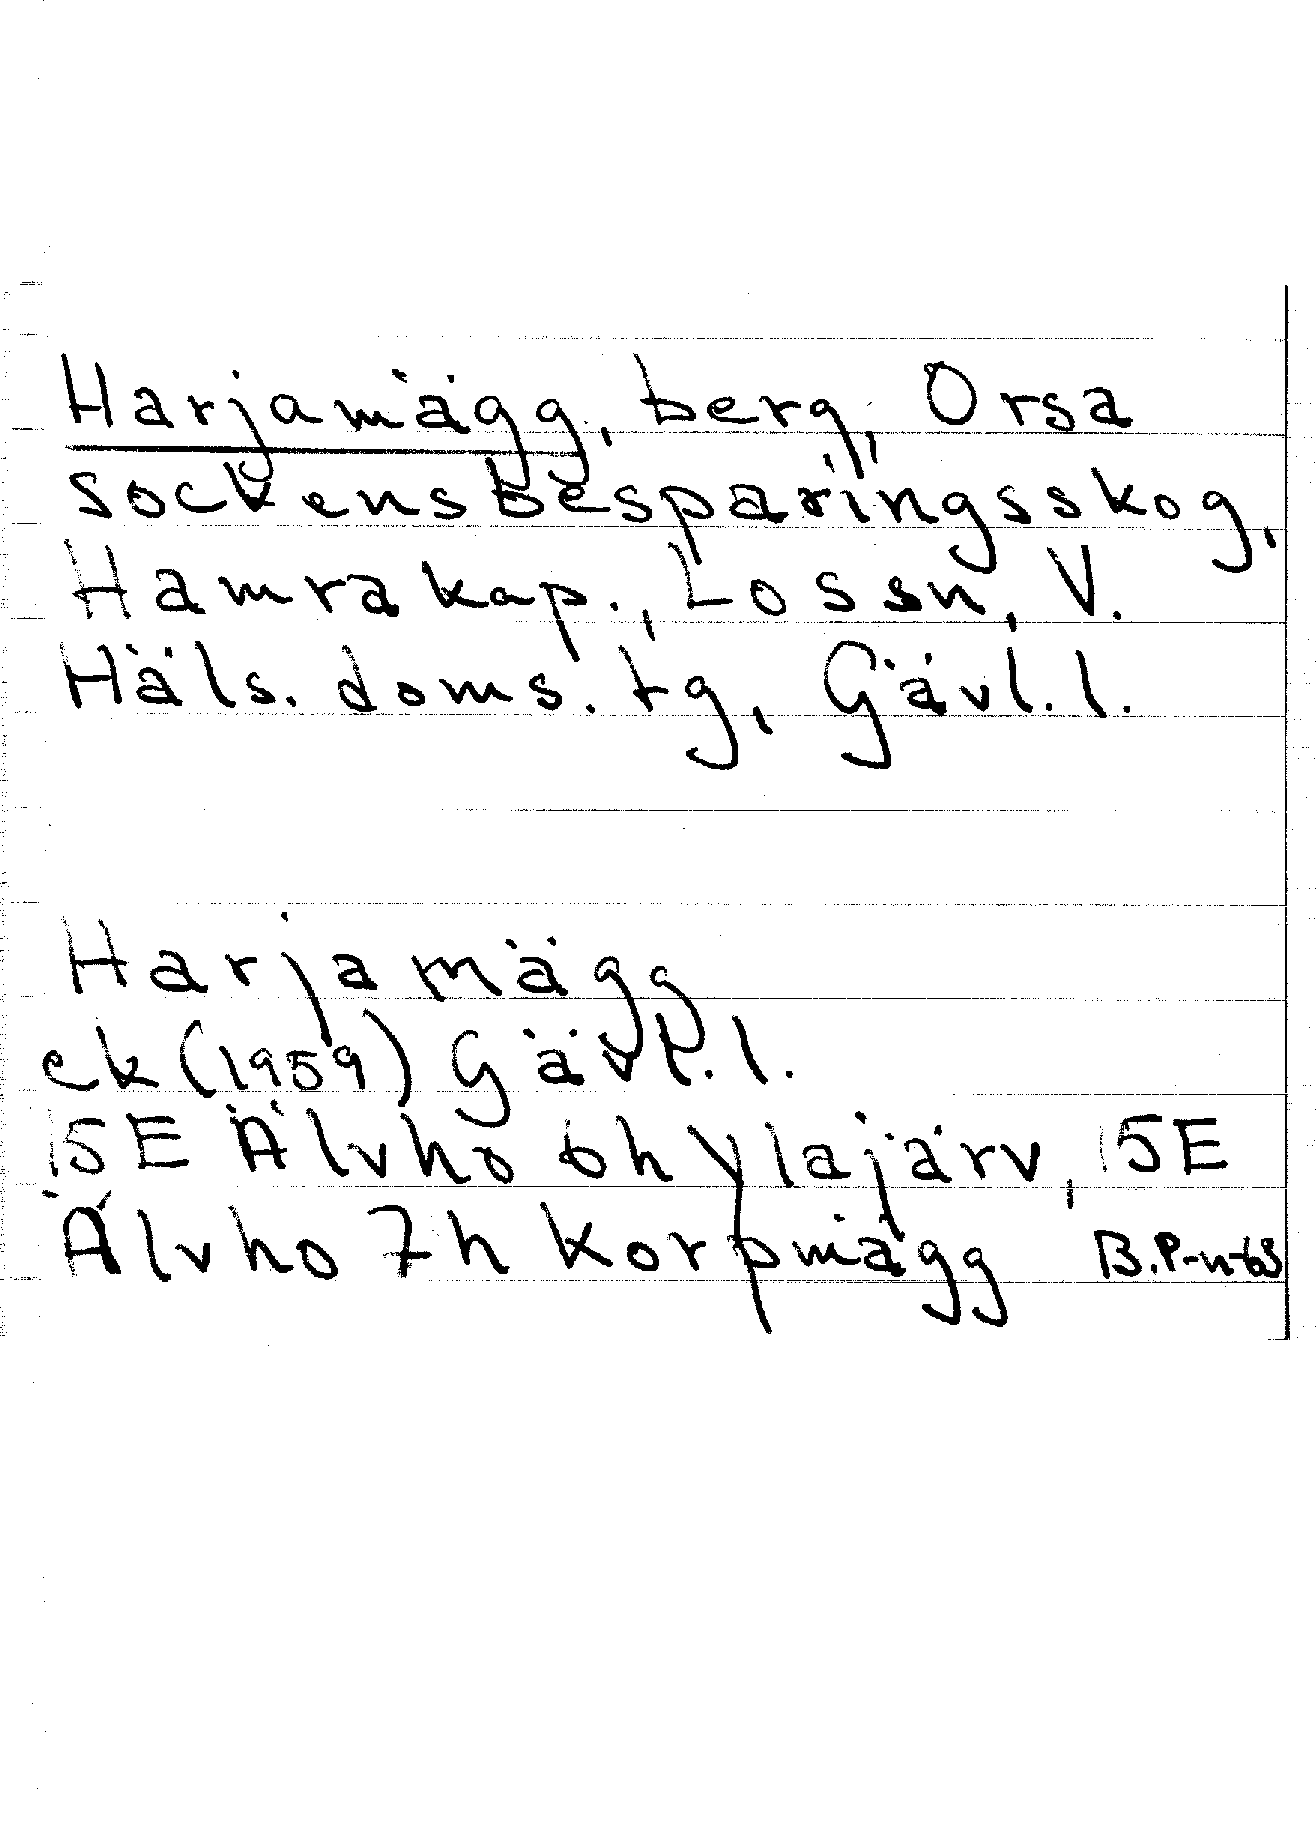 Harjamägg, berg, Orsa
sockensbesparingsskog,
Hamra kap., Los sn, V.
Häls. doms. tg, Gävl. l.
Harjamägg
ek (1959) Gävl. l.
15E Älvho 6h Ylajärv, 15E
Älvho 7h Korpmägg B.P-n-63